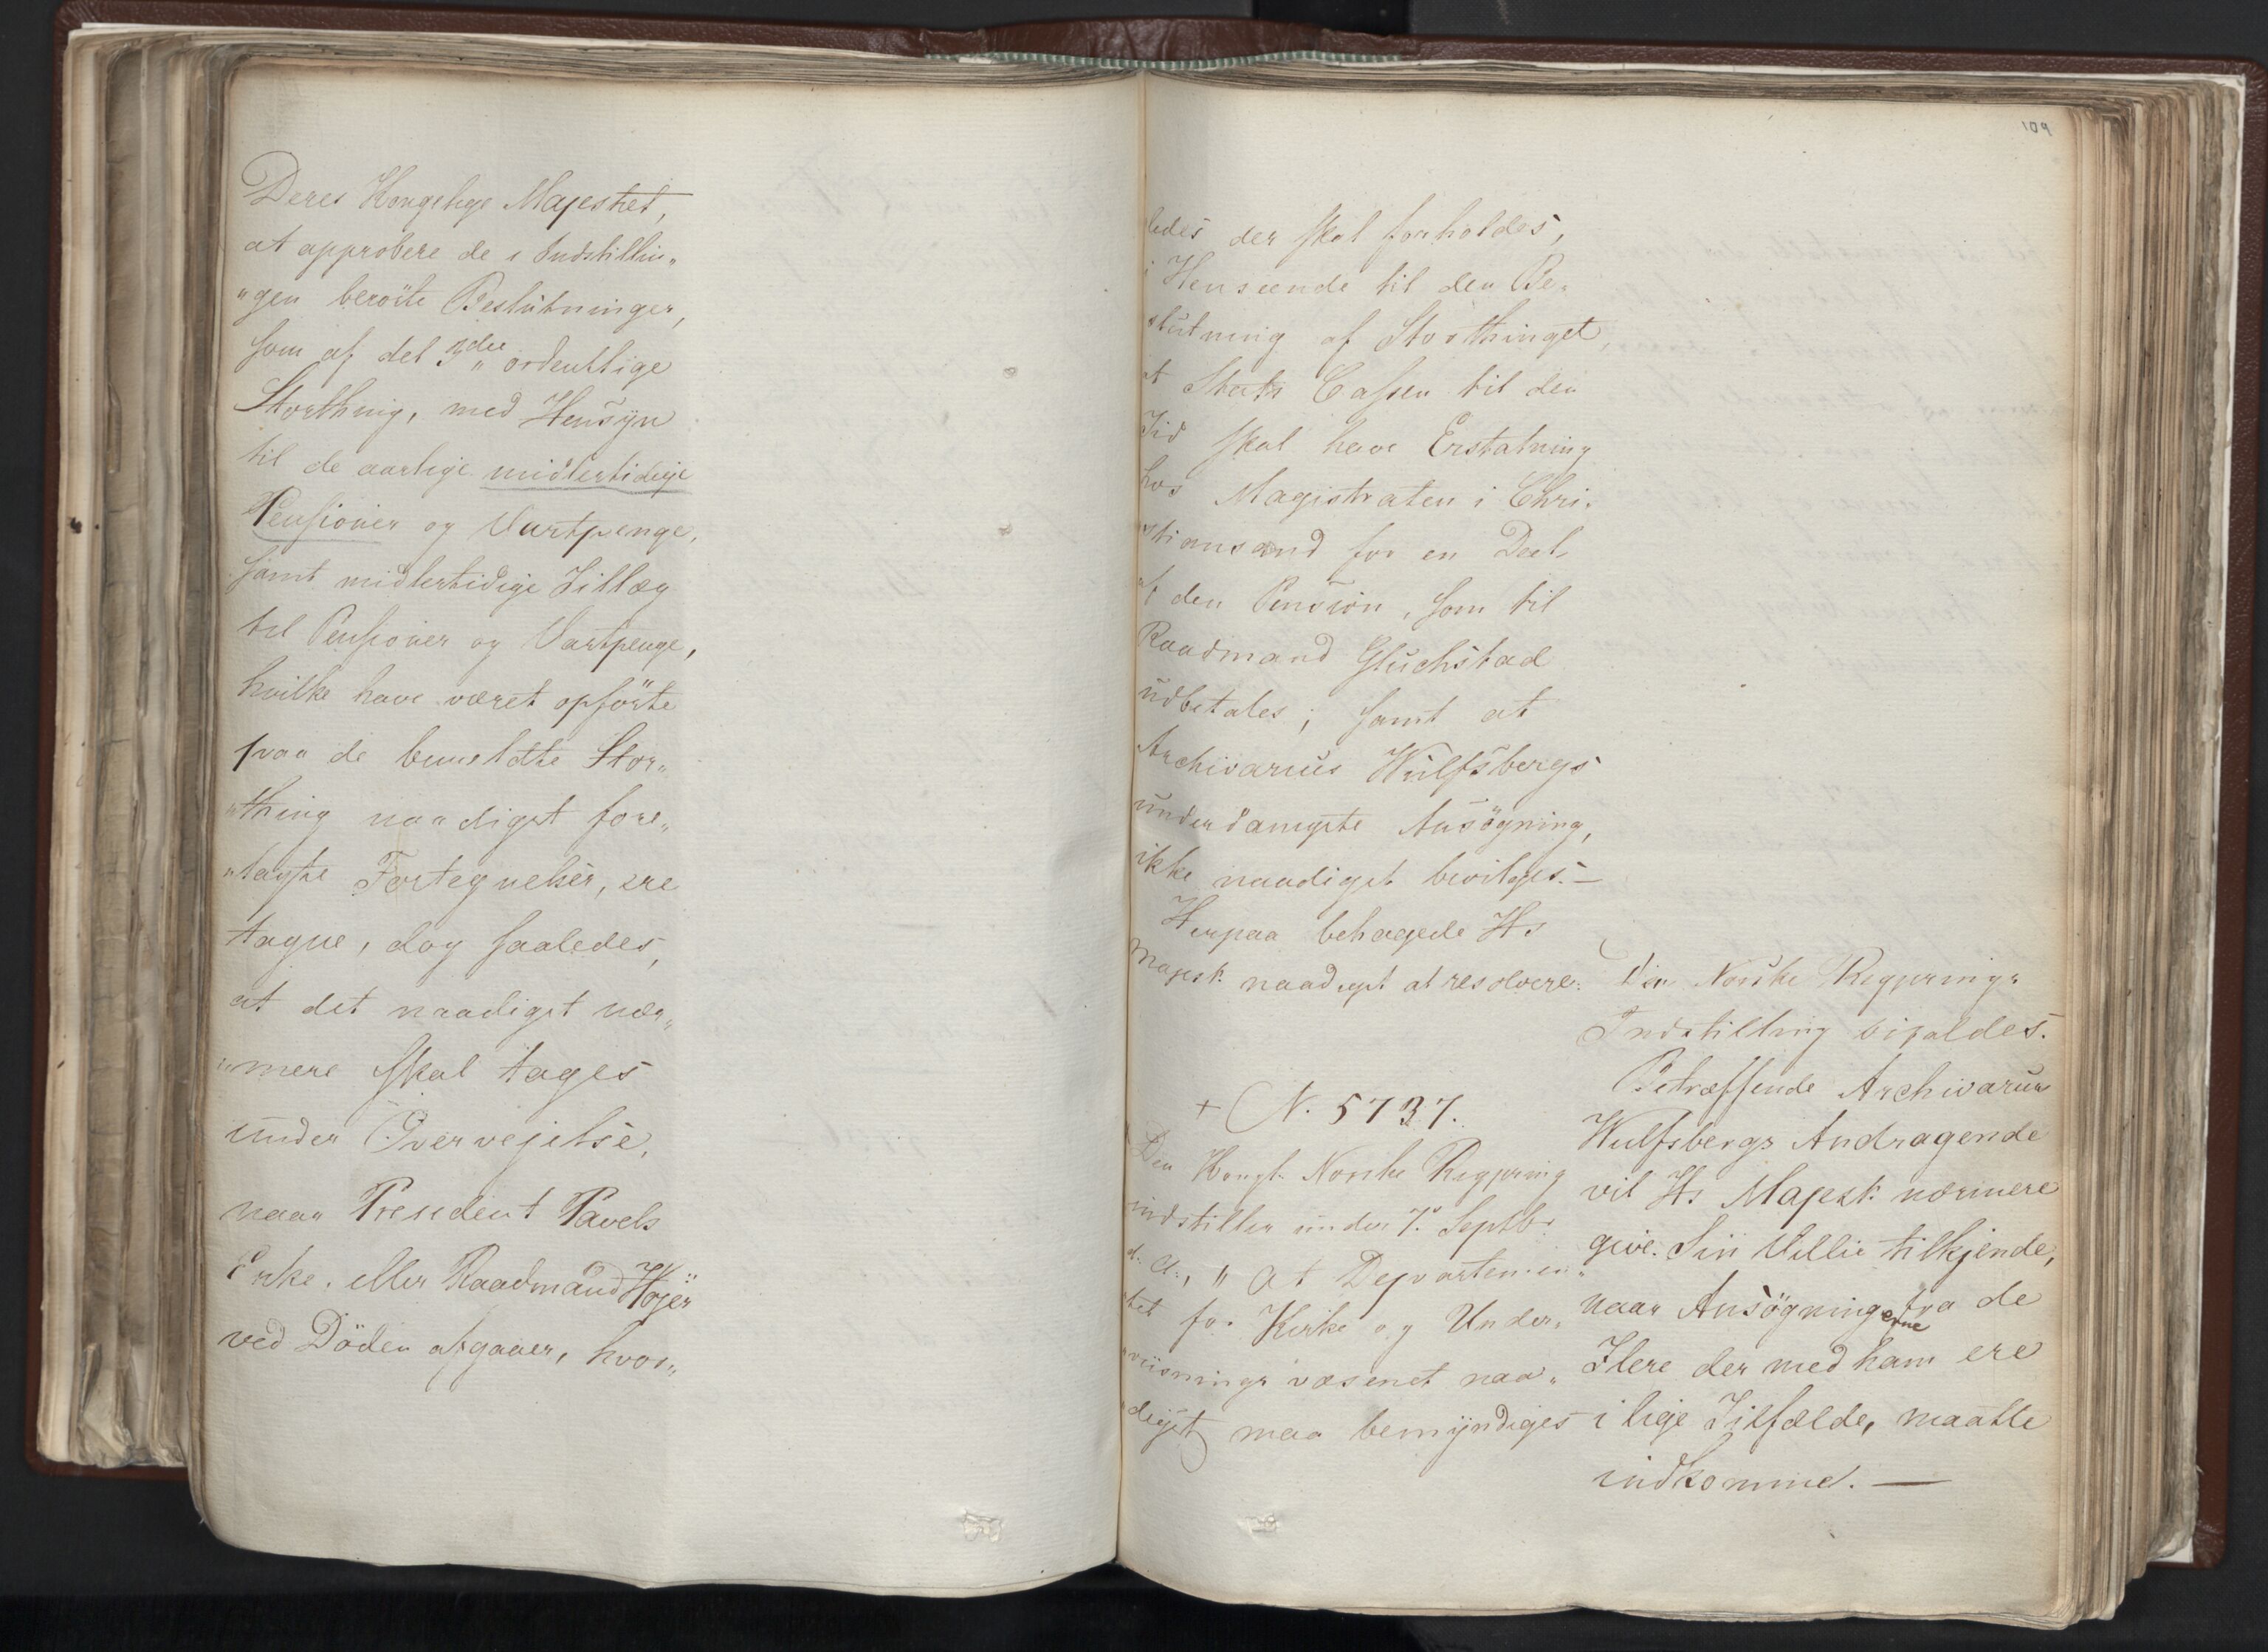 Deres Kongelige Majestet,
at approbere de i Indstillin„
„gen berörte Beslutninger,
som af det 3die„ ordentlige
Storthing, med Hensyn
til de aarlige midlertidige
Pensioner og Vartpenge,
samt midlertidige Tillæg
til Pensioner og Vartpenge,
hvilke have været opförte
paa de bemeldte Stor„
„thing naadigst fore„
„lagte Fortegnelser, ere
tagne, dog saaledes,
at det naadigst nær„
„mere skal tages
under Overvejelse,
naar President Pavels
Enke, eller Raadmand Höjer
ved Döden afgaaer, hvor„
109
ledes der skal forholdes,
i Henseende til den Be„
slutning af Storthinget,
at Stats Cassen til den
Tid skal have Erstatning
hos Magistraten i Chri„
stiansand for en Deel
af den Pension, som til
Raadmand Gluckstad
udbetales; samt at
Archivarius Wulfsbergs
underdanigste Ansögning,
ikke naadigst bevilges.—
Herpaa behagede Hs
Majest: naadigst at resolvere:
Den Norske Regjerings
Indstilling bifaldes.
Betræffende Archivarius
Wulfsbergs Andragende
vil Hs Majest: nærmere
give Sin Villie tilkjende,
naar Ansögningerne fra de
Flere der med ham ere
i lige Tilfælde, maatte
indkomme. —
+ N. 5737.
Den Kongl: Norske Regjering
indstiller under 7. Septbr:
d. A:, " At Departemen„
tet for Kirke og Under„
„viisnings væsenet naa„
„digst maa bemyndiges